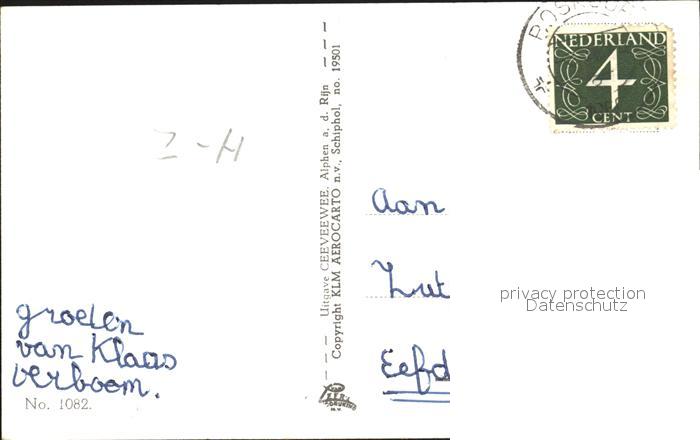 NEDERLAND
4
CENT
Z-H
Uitgave CEEVEEWEE, Alphen a. d. Rijn
Copyright KLM AEROCARTO n.v., Schiphol, no. 19501
Aan
Zut
Eefd
privacy protection
Datenschutz
groeten
van Klaas
verboom.
No. 1082.